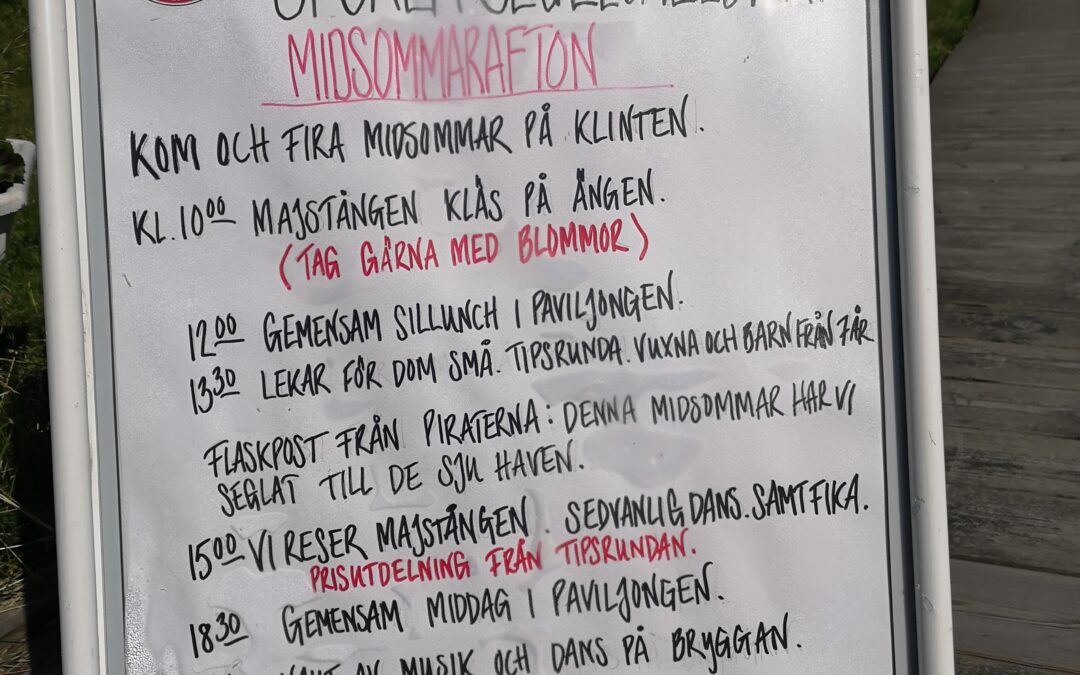 MIDSOMMARAFTON
KOM OCH FIRA MIDSOMMAR PÅ KLINTEN.
KL. 10 00 MAJSTÅNGEN KLÄS PÅ ÄNGEN.
(TAG GÄRNA MED BLOMMOR)
12 00 GEMENSAM SILLUNCH I PAVILJONGEN.
13 30 LEKAR FÖR DOM SMÅ. TIPSRUNDA. VUXNA OCH BARN FRÅN 7ÅR
FLASKPOST FRÅN PIRATERNA: DENNA MIDSOMMAR HAR VI
SEGLAT TILL DE SJU HAVEN.
15 00 VI RESER MAJSTÅNGEN. SEDVANLIG DANS. SAMT FIKA.
PRISUTDELNING FRÅN TIPSRUNDAN.
18 30 GEMENSAM MIDDAG I PAVILJONGEN.
AV MUSIK OCH DANS PÅ BRYGGAN.